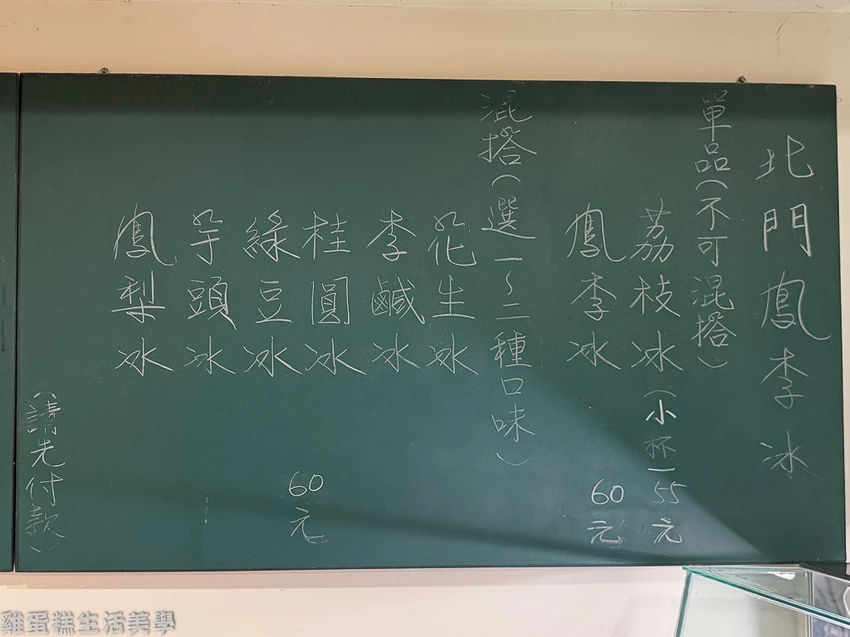 北門鳳李冰
單品(不可混搭)
荔枝冰(小杯)55元
鳳李冰 60元
混搭(選一~二種口味)
花生冰
李鹹冰
桂圓冰 60元
綠豆冰
芋頭冰
鳳梨冰
(請先付款)
雞蛋糕生活美學